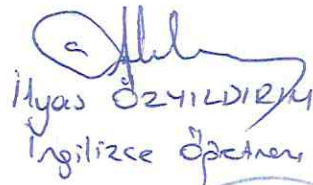 İlyas ÖZYILDIRIM
İngilizce Öğretmeni